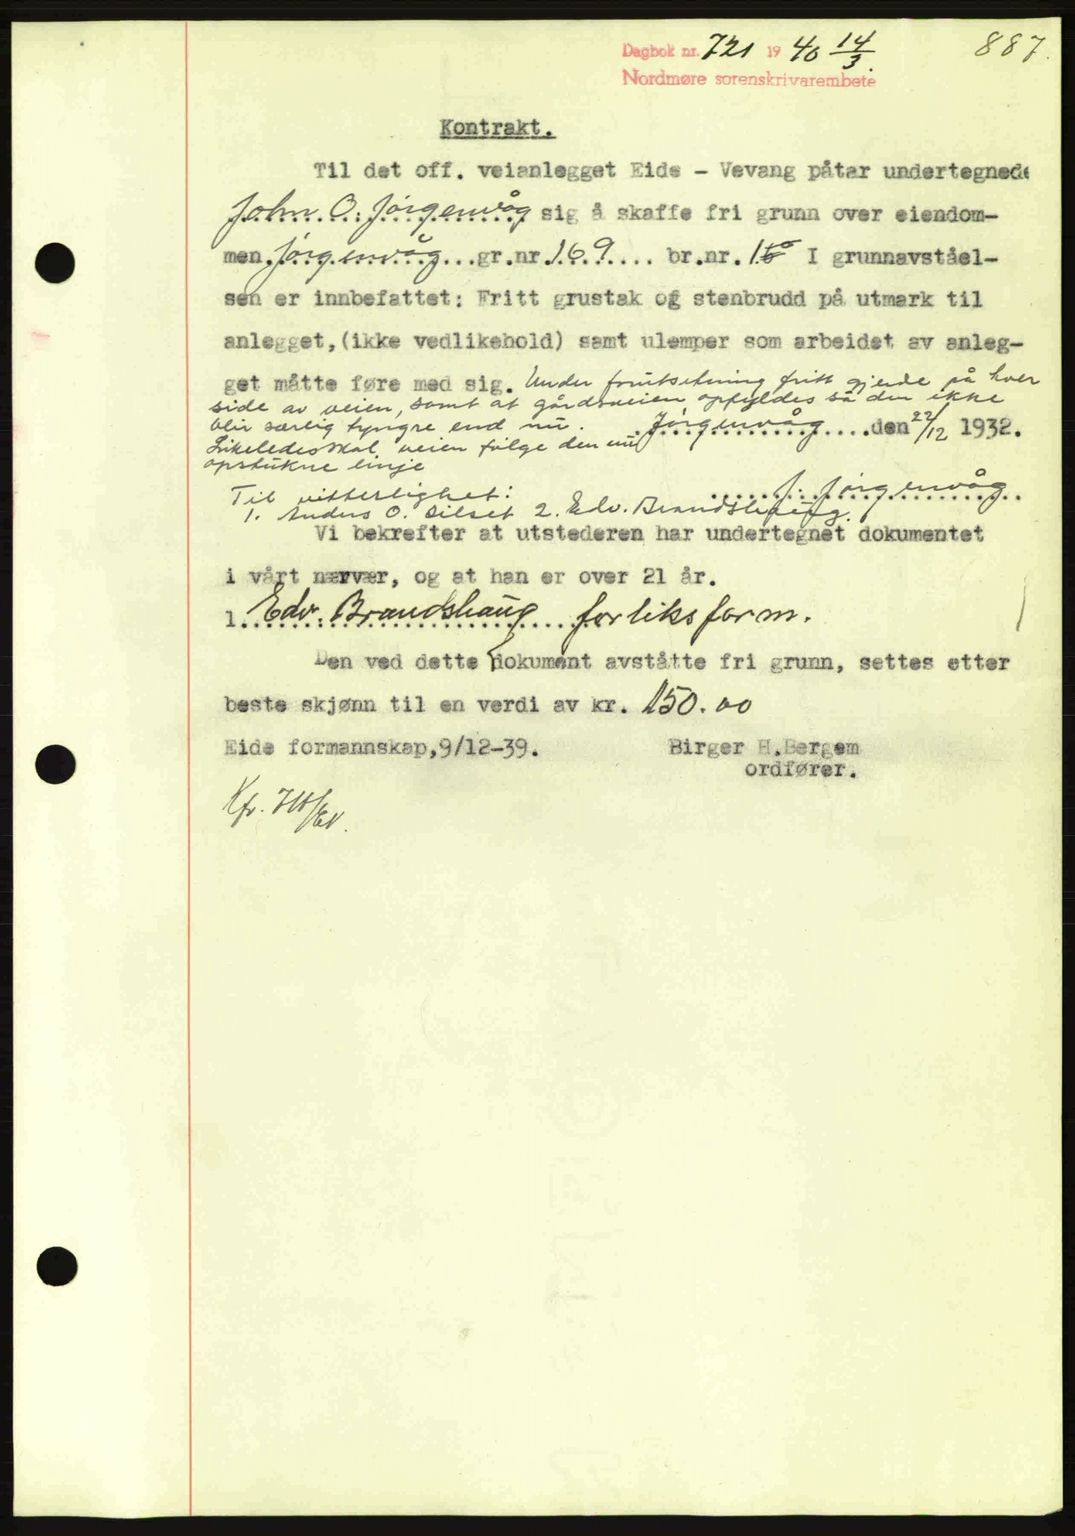 887.
Dagbok nr. 721 19 40 14/3.
Nordmøre sorenskrivarembete
Kontrakt.
Til det off. veianlegget Eide - Vevang påtar undertegnede
John O. Jörgenvåg sig å skaffe fri grunn over eiendom-
men Jörgenvåg gr.nr. 169 br.nr. I grunnavståel-
sen er innbefattet: Fritt grustak og stenbrudd på utmark til
anlegget, (ikke vedlikehold) samt ulemper som arbeidet av anleg-
get måtte føre med sig. Under forutsetning fritt gjerde på hver
side av veien, samt at gårdsveien opfyldes så den ikke
blir særlig tyngre end nu. Jörgenvåg den 22/12 1932.
Likeledes skal veien følge den nu
opstukne linje
J. Jörgenvåg
Til vitterlighet:
1. Anders O. Silset 2. Edv. Brandshaug.
Vi bekrefter at utstederen har undertegnet dokumentet
i vårt nærvær, og at han er over 21 år.
1. Edv. Brandshaug forliksform.
Den ved dette dokument avståtte fri grunn, settes etter
beste skjønn til en verdi av kr. 150.00
Eide formannskap, 9/12-39. Birger H. Bergem
ordfører.